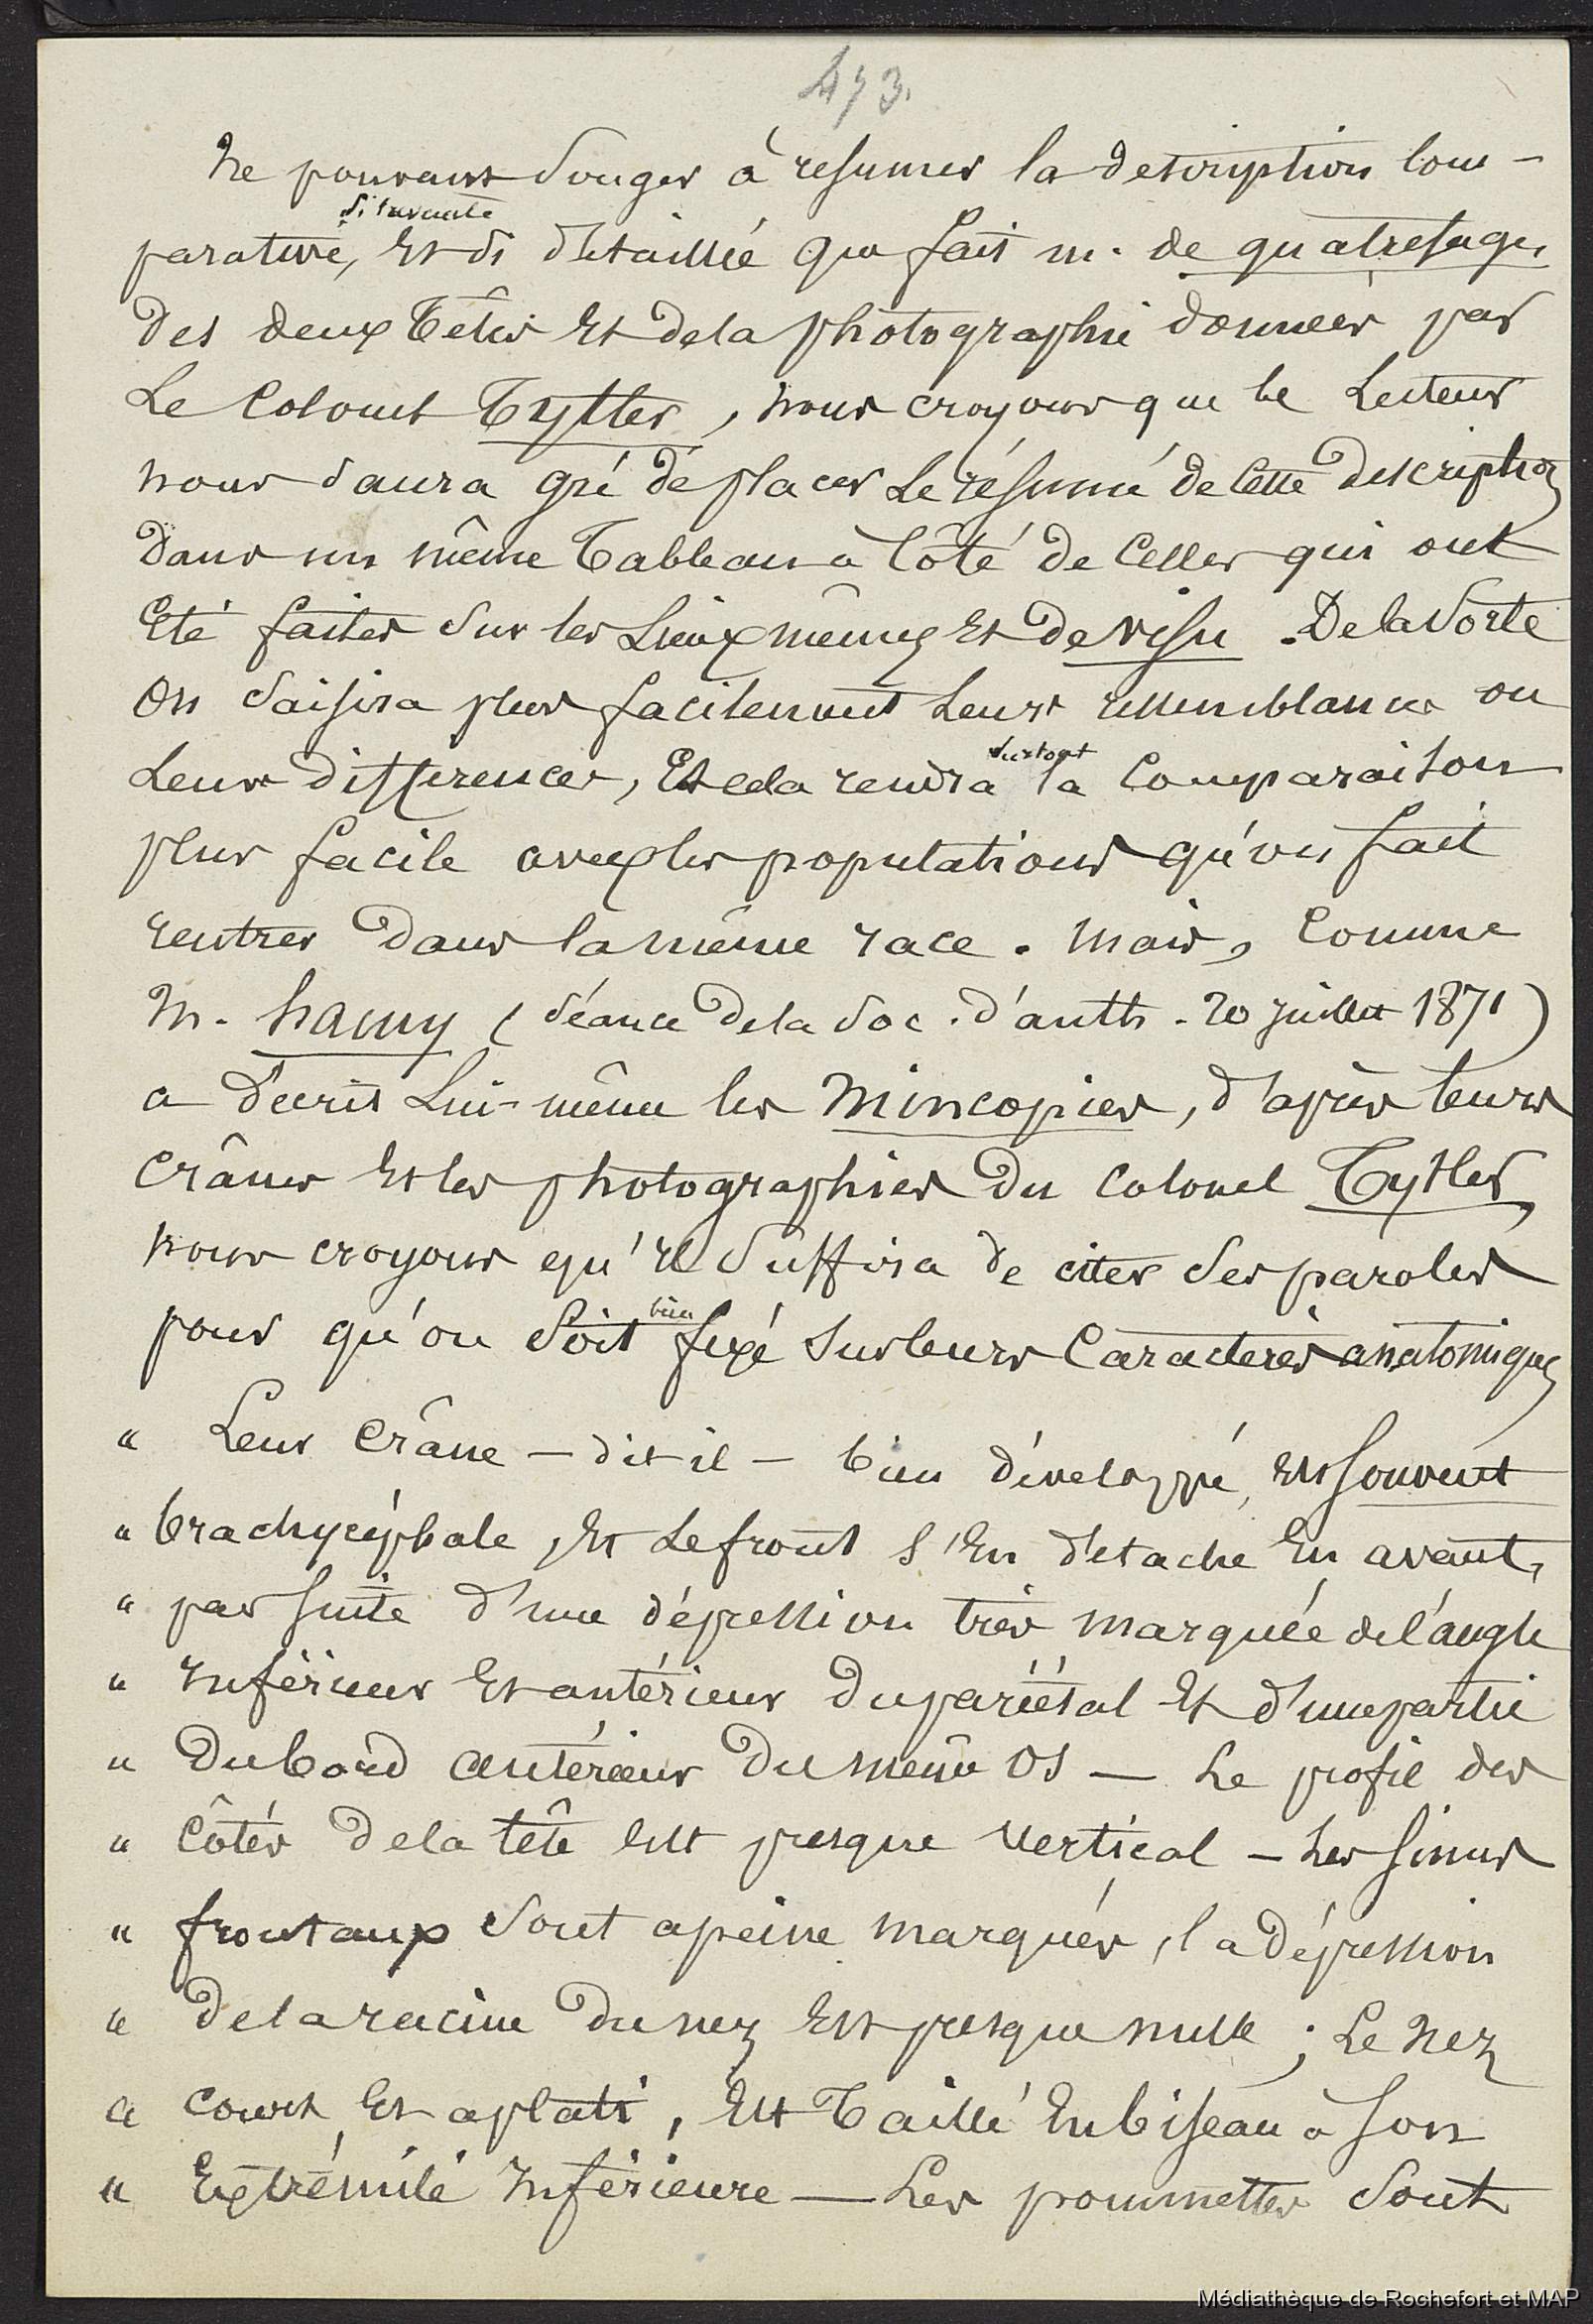 473.
Ne pouvant songer à resumer la description com-
si savante
parative, et si détaillée que fait m. de quatrefages
des deux têtes et de la photographie données par
Le Colonel Tytler, nous croyons que le Lecteur
nous saura gré de placer le résumé de cette description
dans un même tableau à côté de celles qui ont
été faites sur les Lieux mêmes et de visu. De la sorte
on saisira plus facilement leurs ressemblances ou
Leurs differences, et cela rendra surtout la Comparaison
plus facile avec les populations qu'on fait
rentrer dans la même race. mais, comme
M. hamy (séance de la soc. d'anth. 20 juillet 1871)
a décrit Lui-même les Mincopies, d'après leurs
crânes et les photographies du Colonel Tytler,
nous croyons qu'il suffira de citer ses paroles
pour qu'on soit bien fixé sur leurs Caracteres anatomiques
" Leur Crâne – dit-il – bien développé, est souvent
" brachycéphale, et Le front s'en détache en avant,
" par suite d'une dépression très marquée de l'angle
" inférieur et antérieur du pariétal et d'une partie
" du bord antérieur du même os — Le profil des
" Côtés de la tête est presque vertical – Les sinus
" frontaux sont apeine marqués, la dépression
" de la racine du nez est presque nulle ; Le Nez
" court et aplati, est taillé en biseau à son
" Extrémité inférieure — Les pommettes sont
Médiathèque de Rochefort et MAP